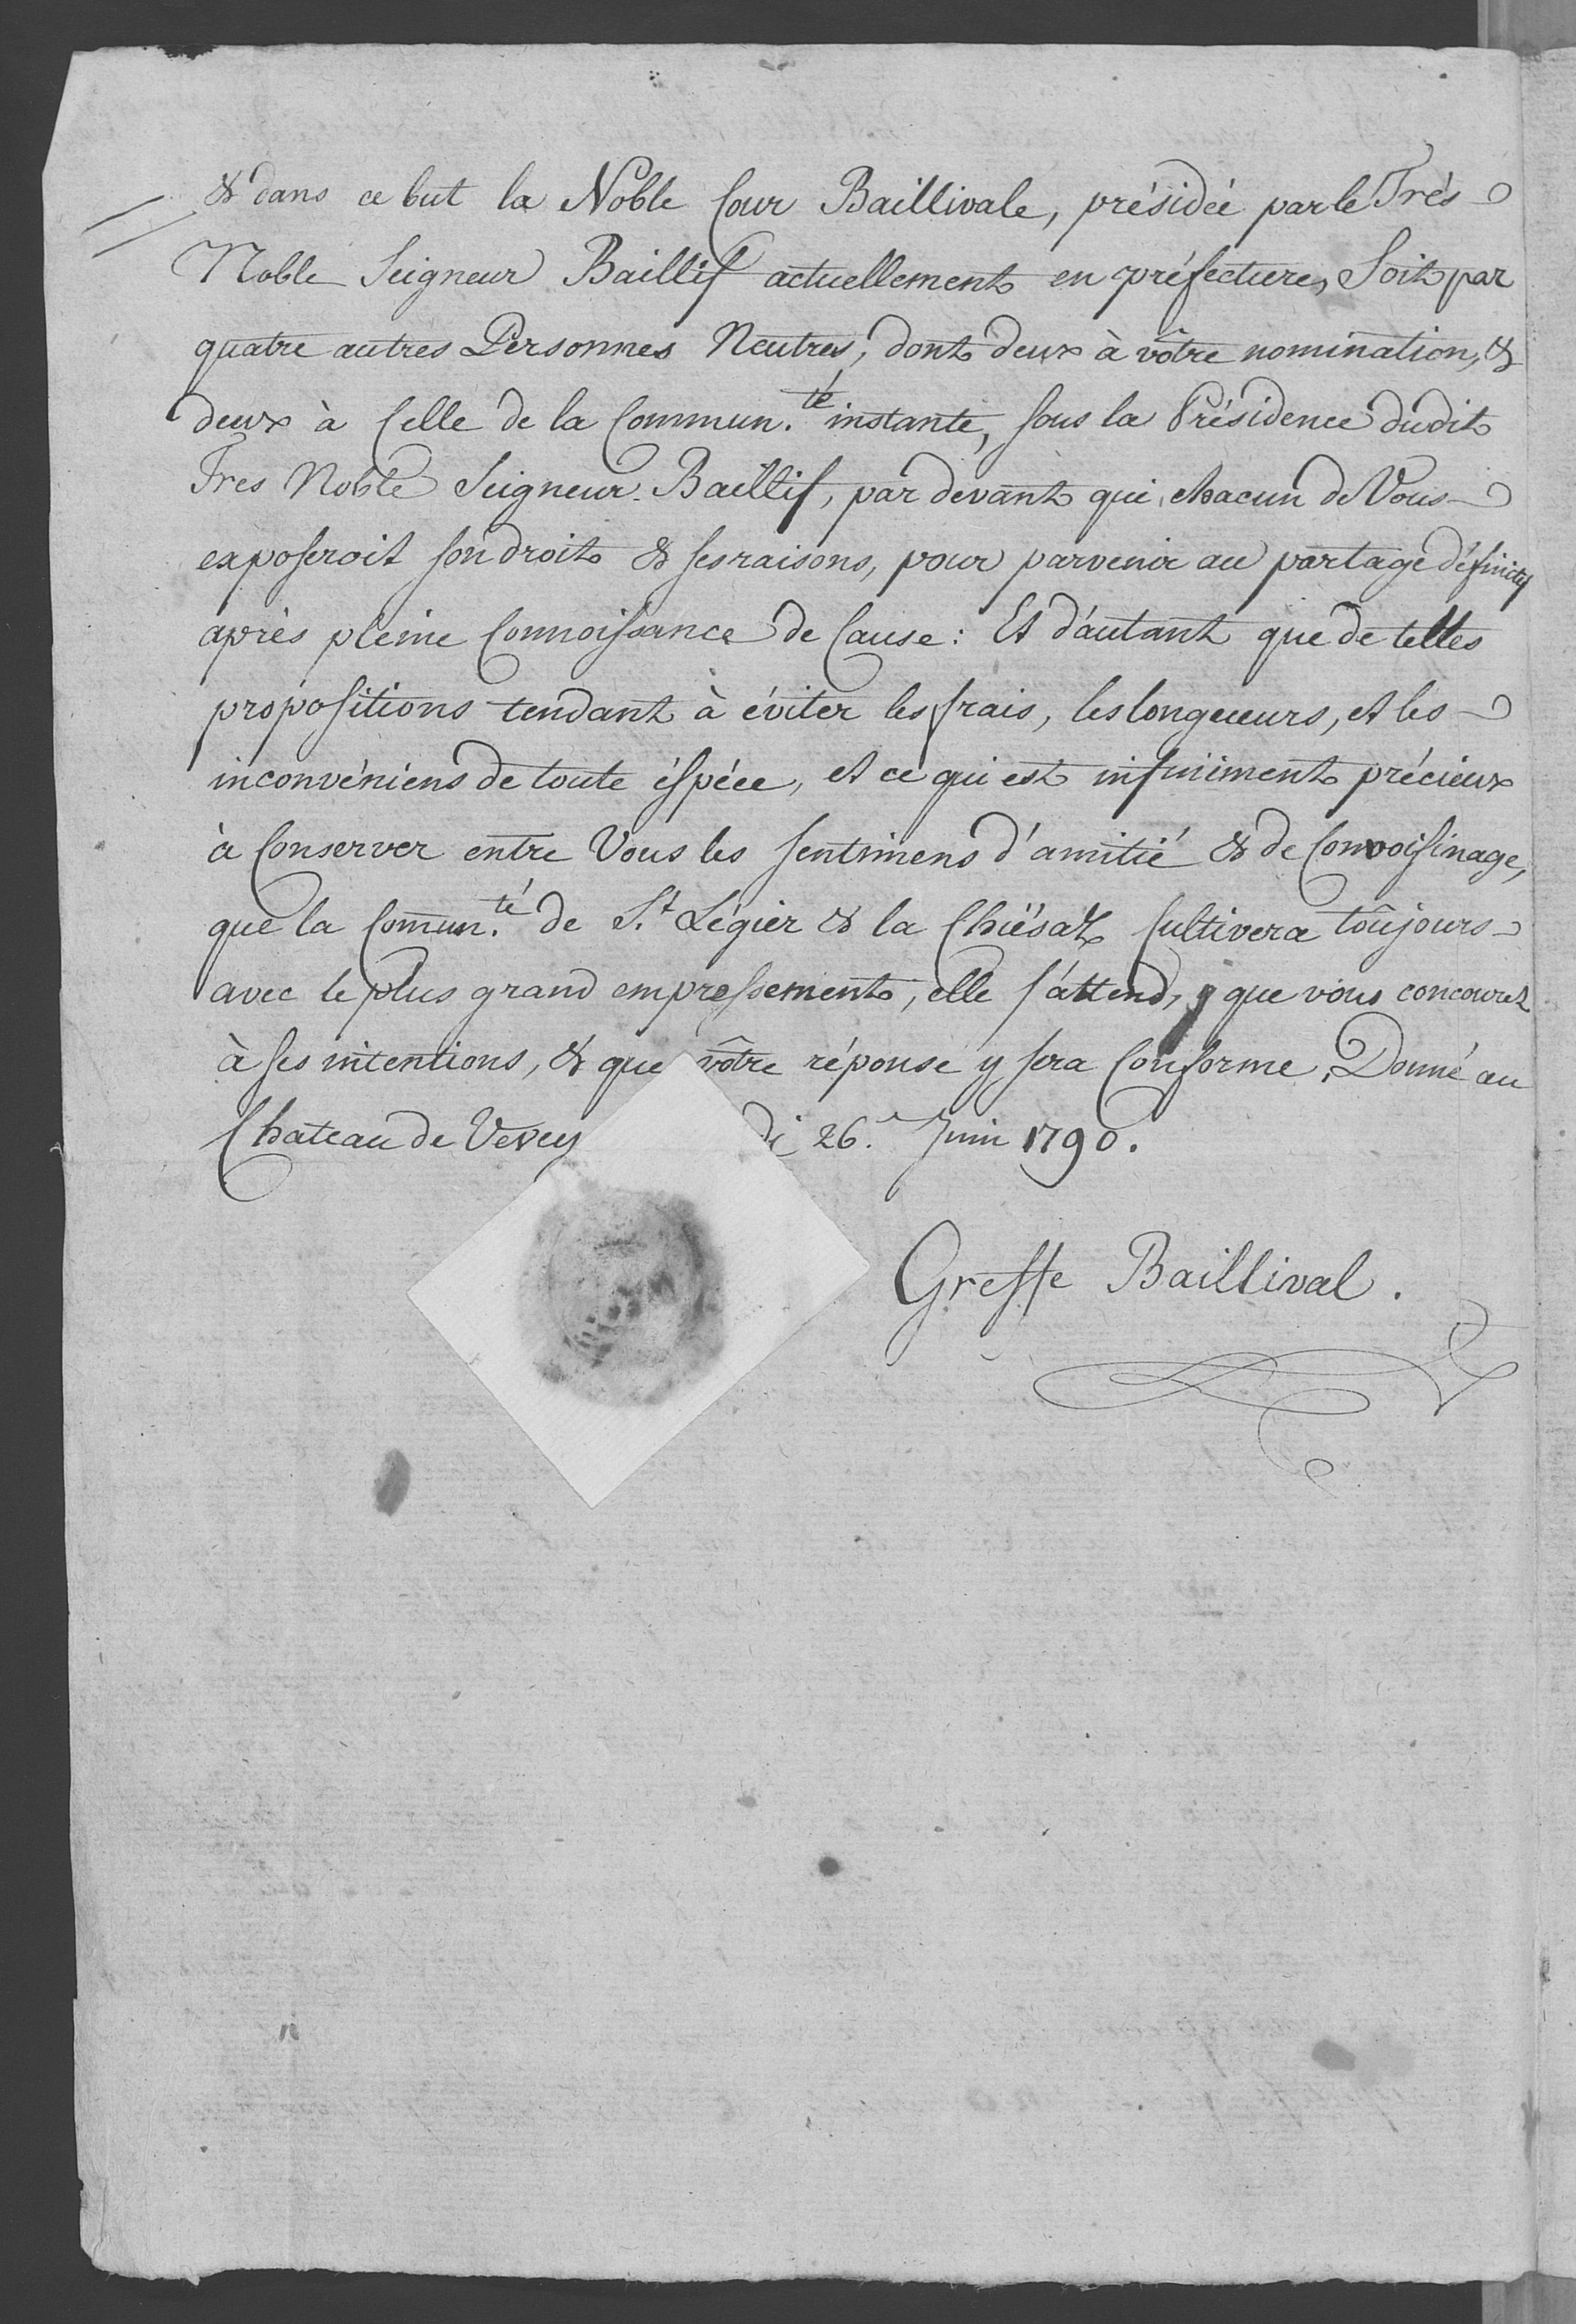 & dans ce but la Noble Cour Baillivale, présidée par le Trés
Noble Seigneur Baillif actuellement en préfecture, Soit par
quatre autres Personnes Neutres, dont deux à vôtre nomination, &
deux à Celle de la Commun.té instante, sous la Présidence dudit
Tres Noble Seigneur Baillif, par devant qui chacun de Vous
exposeroit son droit & ses raisons, pour parvenir au partage définitif
après pleine Connoissance de Cause : Et d'autant que de telles
propositions tendant à éviter les frais, les longueurs, et les
inconvéniens de toute éspéce, et ce qui est infiniment précieux
à Conserver entre Vous les sentimens d'amitié & de Convoisinage,
que la Comun.té de St. Légier & la Chiésaz Cultivera toûjours
avec le plus grand empressement, elle s'attend, que vous concourez
à ses intentions, & que vôtre réponse y sera Conforme, Donné au
Chateau de Vevey di 26. Juin 1790.
Greffe Baillival.